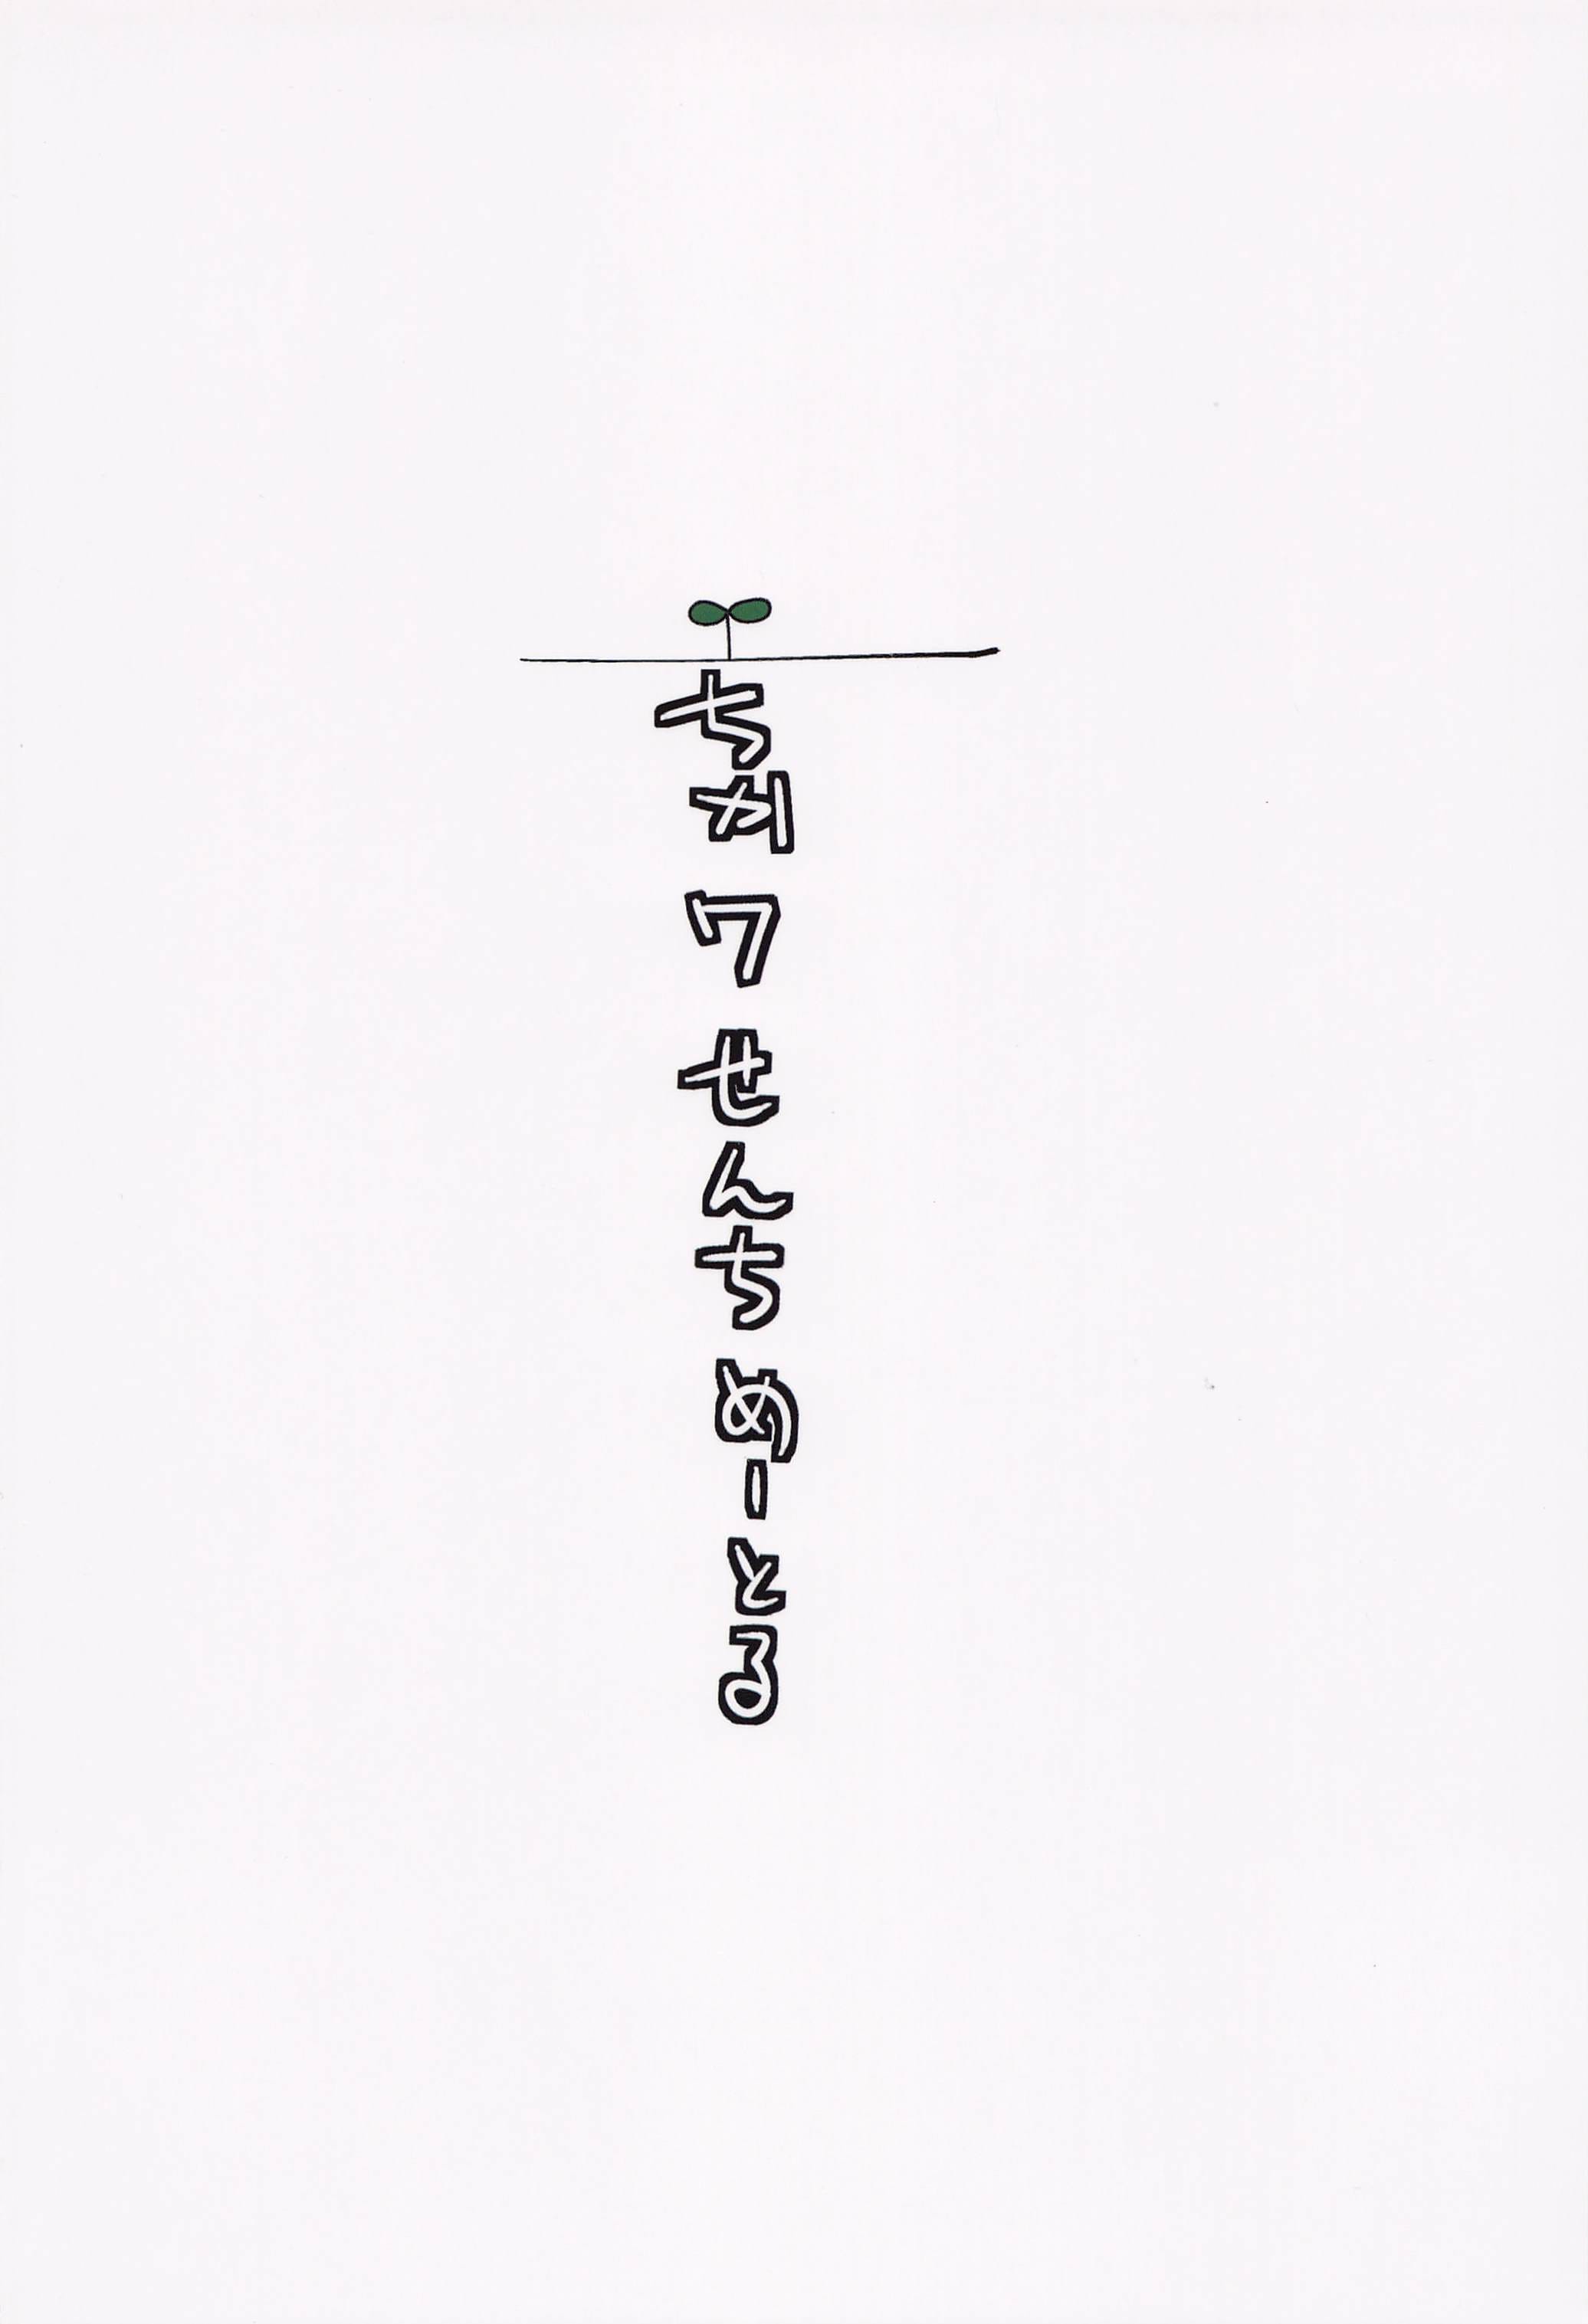 ちか7せんちめーとる